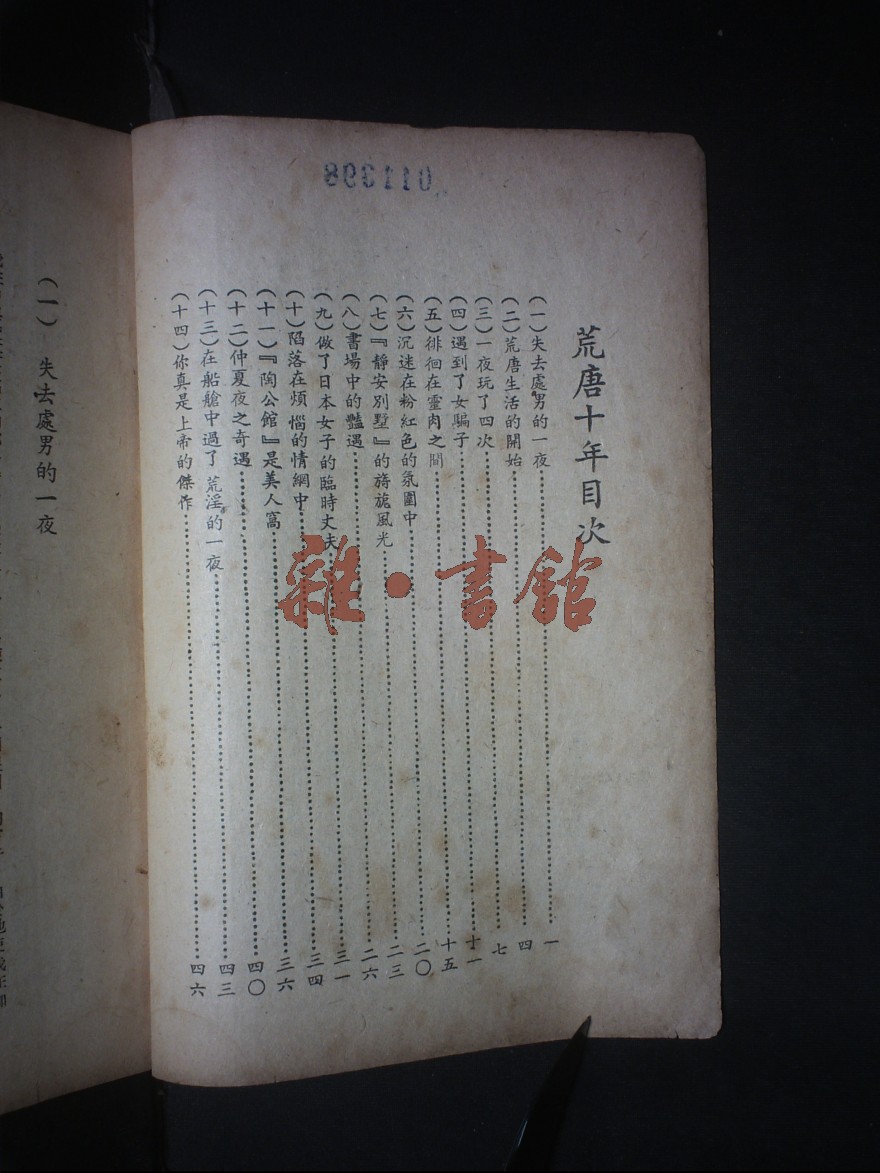 011398
荒唐十年目次
(一)失去處男的一夜⋯⋯一
(二)荒唐生活的開始⋯⋯四
(三)一夜玩了四次⋯⋯七
(四)遇到了女騙子⋯⋯十一
(五)徘徊在靈肉之間⋯⋯十五
(六)沉迷在粉紅色的氛圍中⋯⋯二〇
(七)『靜安別墅』的旖旎風光⋯⋯二三
(八)書場中的豔遇⋯⋯二六
(九)做了日本女子的臨時丈夫⋯⋯三一
(十)陷落在煩惱的情網中⋯⋯三四
(十一)『陶公館』是美人窩⋯⋯三六
(十二)仲夏夜之奇遇⋯⋯四〇
(十三)在船艙中過了荒淫的一夜⋯⋯四三
(十四)你真是上帝的傑作⋯⋯四六
(一) 失去處男的一夜
雜·書館